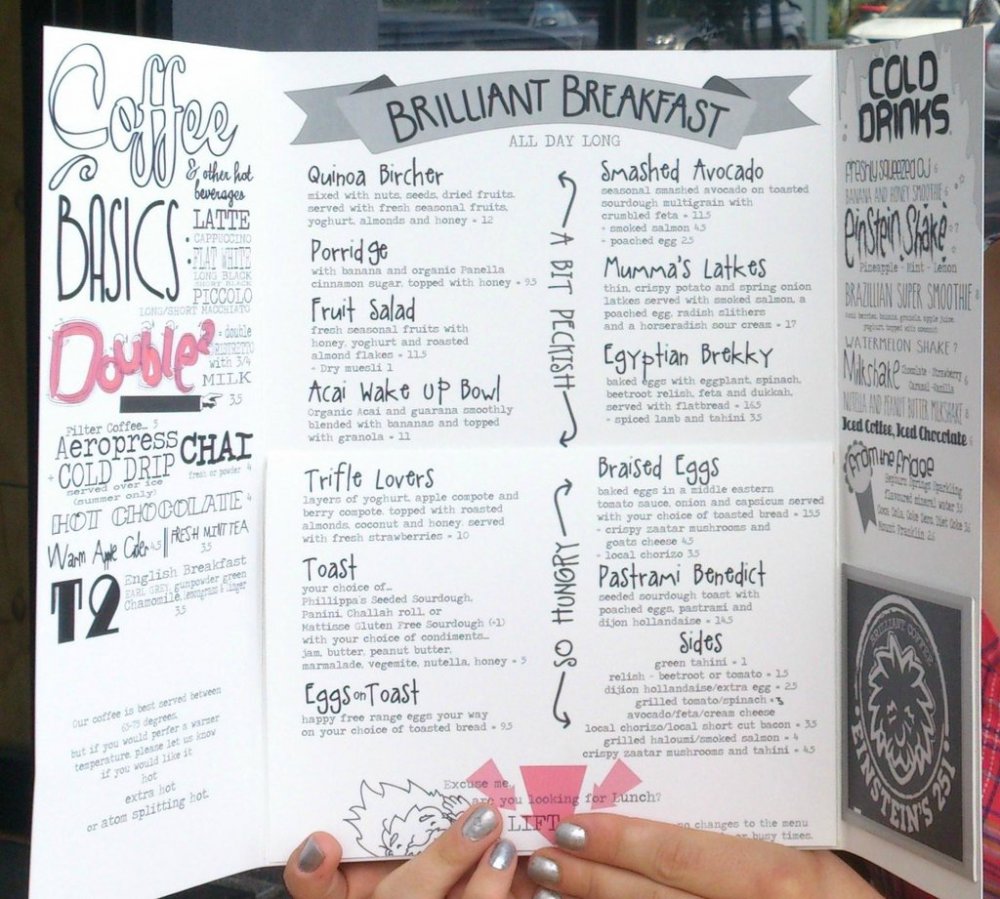 Coffee
& other hot
beverages
BASICS
LATTE
CAPPUCCINO
FLAT WHITE
LONG BLACK
SHORT BLACK
PICCOLO
LONG/SHORT MACCHIATO
Double²
= double
RISTRETTO
with 3/4
MILK
3.5
Filter Coffee... 5
Aeropress
+ COLD DRIP
served over ice
(summer only)
CHAI
fresh or powder 4
HOT CHOCOLATE 4
Warm Apple Cider 4.5
FRESH MINT TEA
3.5
T2
English Breakfast
EARL GREY, gunpowder green
Chamomile, lemongrass & ginger
3.5
Our coffee is best served between
65-75 degrees,
but if you would perfer a warmer
temperature, please let us know
if you would like it
hot
extra hot
or atom splitting hot.
BRILLIANT BREAKFAST
ALL DAY LONG
Quinoa Bircher
mixed with nuts, seeds, dried fruits,
served with fresh seasonal fruits,
yoghurt, almonds and honey - 12
Porridge
with banana and organic Panella
cinnamon sugar, topped with honey - 9.5
Fruit Salad
fresh seasonal fruits with
honey, yoghurt and roasted
almond flakes - 11.5
+ Dry muesli 1
Acai Wake Up Bowl
Organic Acai and guarana smoothly
blended with bananas and topped
with granola - 11
Trifle Lovers
layers of yoghurt, apple compote and
berry compote, topped with roasted
almonds, coconut and honey, served
with fresh strawberries - 10
Toast
your choice of...
Phillippa's Seeded Sourdough,
Panini, Challah roll, or
Mattisse Gluten Free Sourdough (+1)
with your choice of condiments...
jam, butter, peanut butter,
marmalade, vegemite, nutella, honey - 5
Eggs on Toast
happy free range eggs your way
on your choice of toasted bread - 9.5
A BIT PECKISH
SO HUNGRY
Smashed Avocado
seasonal smashed avocado on toasted
sourdough multigrain with
crumbled feta - 11.5
+ smoked salmon 4.5
+ poached egg 2.5
Mumma's Latkes
thin, crispy potato and spring onion
latkes served with smoked salmon, a
poached egg, radish slithers
and a horseradish sour cream - 17
Egyptian Brekky
baked eggs with eggplant, spinach,
beetroot relish, feta and dukkah,
served with flatbread - 16.5
+ spiced lamb and tahini 3.5
Braised Eggs
baked eggs in a middle eastern
tomato sauce, onion and capsicum served
with your choice of toasted bread - 15.5
+ crispy zaatar mushrooms and
goats cheese 4.5
+ local chorizo 3.5
Pastrami Benedict
seeded sourdough toast with
poached eggs, pastrami and
dijon hollandaise - 14.5
Sides
green tahini - 1
relish - beetroot or tomato - 1.5
dijion hollandaise/extra egg - 2.5
grilled tomato/spinach - 3
avocado/feta/cream cheese
local chorizo/local short cut bacon - 3.5
grilled haloumi/smoked salmon - 4
crispy zaatar mushrooms and tahini - 4.5
Excuse me,
are you looking for Lunch?
LIFT
no changes to the menu
or busy times.
COLD
DRINKS
Freshly Squeezed OJ 6
BANANA AND HONEY SMOOTHIE 6
Einstein Shake
Pineapple - Mint - Lemon
BRAZILLIAN SUPER SMOOTHIE 8
Acai berries, banana, granola, apple juice,
yoghurt, topped with coconut
WATERMELON SHAKE 7
Milkshake
Chocolate - Strawberry
Caramel - Vanilla
6
NUTELLA AND PEANUT BUTTER MILKSHAKE 8
Iced Coffee, Iced Chocolate 6
From the fridge
Hepburn Springs Sparkling
flavoured mineral water 3.5
Coca Cola, Coke Zero, Diet Coke 3.5
Mount Franklin 2.5
BRILLIANT COFFEE
EINSTEIN'S 251